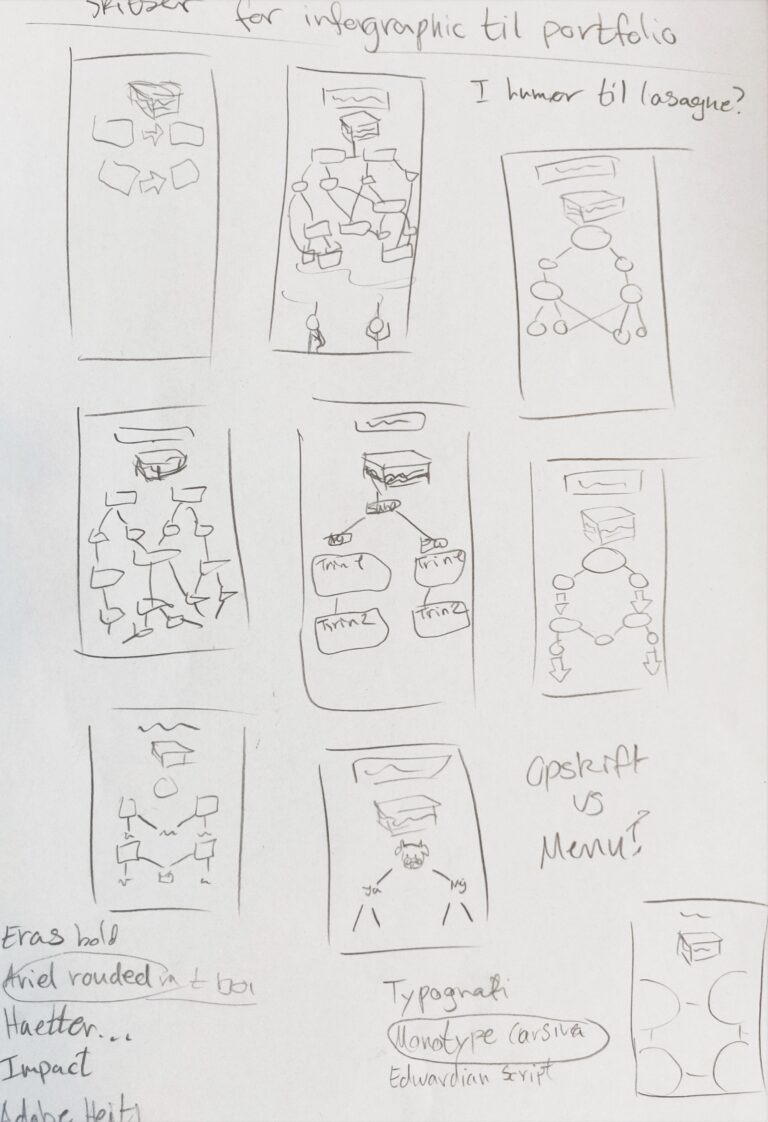 Skitser for infographic til portfolio
I humør til lasagne?
Trin 1
Trin 1
Trin 2
Trin 2
Ja
Nej
Opskrift
vs
Menu?
Eras bold
Ariel rouded
Haetter...
Impact
Typografi
Monotype Carsiva
Edwardian Script